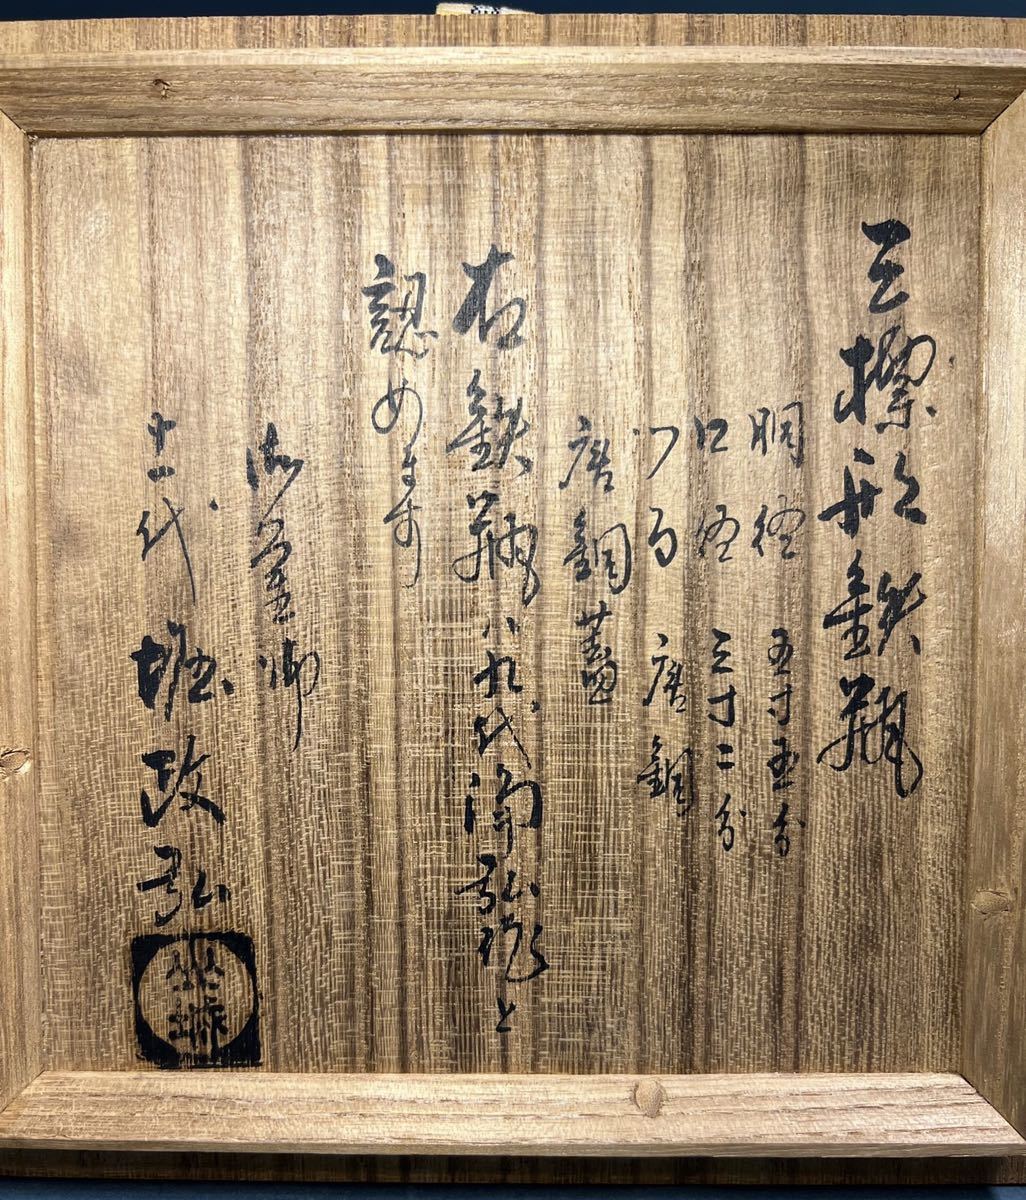 形鉄瓶
胴径 五寸五分
口径 三寸二分
つる 唐銅
唐銅蓋
右鉄瓶ハ九代浄弘作と
認めます
御釜師
十一代 堀政弘